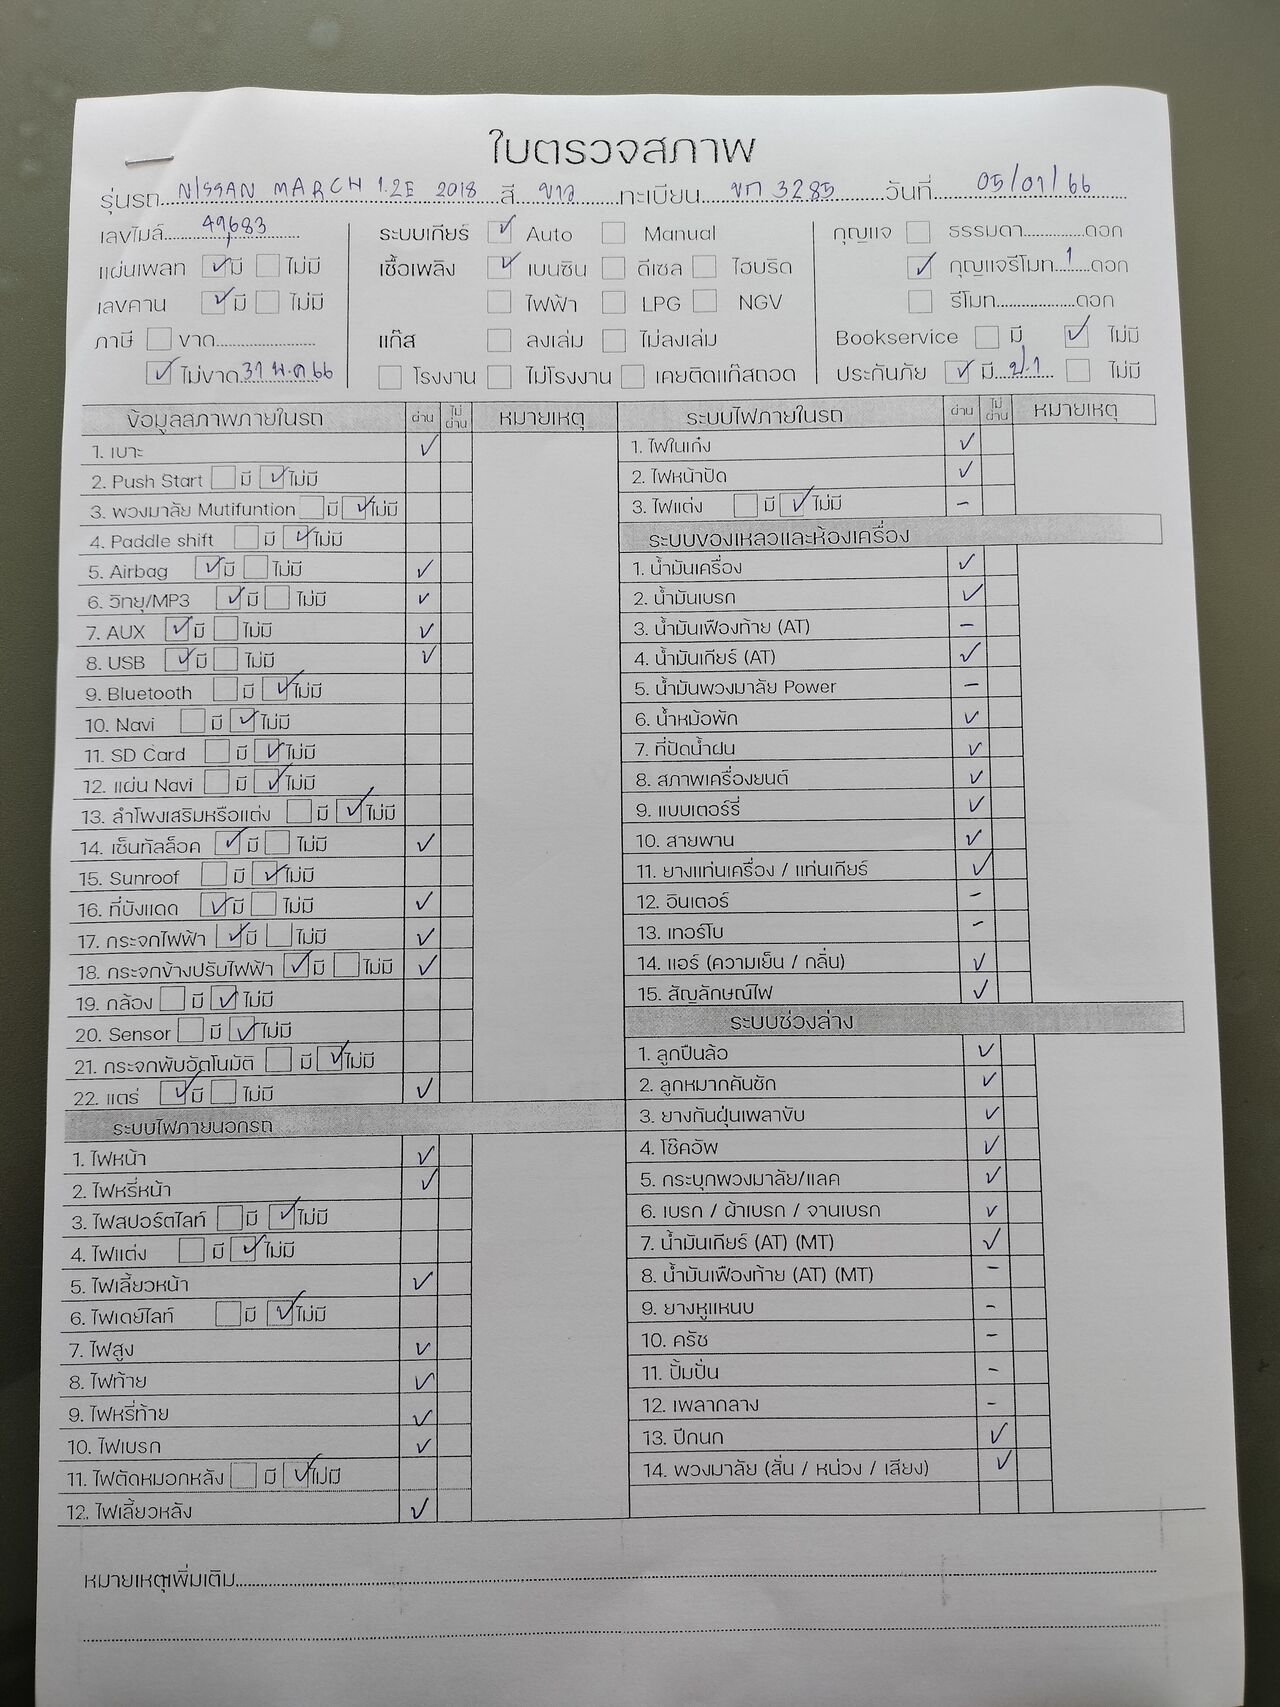 ใบตรวจสภาพ
รุ่นรถ NISSAN MARCH 1.2E 2018 สี ขาว ทะเบียน ขก 3285 วันที่ 05/01/66
เลขไมล์ 49,683 ระบบเกียร์ ☑ Auto ☐ Manual กุญแจ ☐ ธรรมดา..........ดอก
แผ่นเพลท ☑ มี ☐ ไม่มี เชื้อเพลิง ☑ เบนซิน ☐ ดีเซล ☐ ไฮบริด ☑ กุญแจรีโมท 1 ดอก
เลขคาน ☑ มี ☐ ไม่มี ☐ ไฟฟ้า ☐ LPG ☐ NGV ☐ รีโมท..........ดอก
ภาษี ☐ ขาด.......... แก๊ส ☐ ลงเล่ม ☐ ไม่ลงเล่ม Bookservice ☐ มี ☑ ไม่มี
☑ ไม่ขาด 31 พ.ค 66 ☐ โรงงาน ☐ ไม่โรงงาน ☐ เคยติดแก๊สถอด ประกันภัย ☑ มี ป.1 ☐ ไม่มี
ข้อมูลสภาพภายในรถ ผ่าน ไม่ผ่าน หมายเหตุ
1. เบาะ ✓
2. Push Start ☐ มี ☑ ไม่มี
3. พวงมาลัย Mutifuntion ☐ มี ☑ ไม่มี
4. Paddle shift ☐ มี ☑ ไม่มี
5. Airbag ☑ มี ☐ ไม่มี ✓
6. วิทยุ/MP3 ☑ มี ☐ ไม่มี ✓
7. AUX ☑ มี ☐ ไม่มี ✓
8. USB ☑ มี ☐ ไม่มี ✓
9. Bluetooth ☐ มี ☑ ไม่มี
10. Navi ☐ มี ☑ ไม่มี
11. SD Card ☐ มี ☑ ไม่มี
12. แผ่น Navi ☐ มี ☑ ไม่มี
13. ลำโพงเสริมหรือแต่ง ☐ มี ☑ ไม่มี
14. เซ็นทัลล็อค ☑ มี ☐ ไม่มี ✓
15. Sunroof ☐ มี ☑ ไม่มี
16. ที่บังแดด ☑ มี ☐ ไม่มี ✓
17. กระจกไฟฟ้า ☑ มี ☐ ไม่มี ✓
18. กระจกข้างปรับไฟฟ้า ☑ มี ☐ ไม่มี ✓
19. กล้อง ☐ มี ☑ ไม่มี
20. Sensor ☐ มี ☑ ไม่มี
21. กระจกพับอัตโนมัติ ☐ มี ☑ ไม่มี
22. แตร่ ☑ มี ☐ ไม่มี ✓
ระบบไฟภายนอกรถ
1. ไฟหน้า ✓
2. ไฟหรี่หน้า ✓
3. ไฟสปอร์ตไลท์ ☐ มี ☑ ไม่มี
4. ไฟแต่ง ☐ มี ☑ ไม่มี
5. ไฟเลี้ยวหน้า ✓
6. ไฟเดย์ไลท์ ☐ มี ☑ ไม่มี
7. ไฟสูง ✓
8. ไฟท้าย ✓
9. ไฟหรี่ท้าย ✓
10. ไฟเบรก ✓
11. ไฟตัดหมอกหลัง ☐ มี ☑ ไม่มี
12. ไฟเลี้ยวหลัง ✓
ระบบไฟภายในรถ ผ่าน ไม่ผ่าน หมายเหตุ
1. ไฟในเก๋ง ✓
2. ไฟหน้าปัด ✓
3. ไฟแต่ง ☐ มี ☑ ไม่มี –
ระบบของเหลวและห้องเครื่อง
1. น้ำมันเครื่อง ✓
2. น้ำมันเบรก ✓
3. น้ำมันเฟืองท้าย (AT) –
4. น้ำมันเกียร์ (AT) ✓
5. น้ำมันพวงมาลัย Power –
6. น้ำหม้อพัก ✓
7. ที่ปัดน้ำฝน ✓
8. สภาพเครื่องยนต์ ✓
9. แบบเตอร์รี่ ✓
10. สายพาน ✓
11. ยางแท่นเครื่อง / แท่นเกียร์ ✓
12. อินเตอร์ –
13. เทอร์โบ –
14. แอร์ (ความเย็น / กลิ่น) ✓
15. สัญลักษณ์ไฟ ✓
ระบบช่วงล่าง
1. ลูกปืนล้อ ✓
2. ลูกหมากคันชัก ✓
3. ยางกันฝุ่นเพลาขับ ✓
4. โช๊คอัพ ✓
5. กระบุกพวงมาลัย/แลค ✓
6. เบรก / ผ้าเบรก / จานเบรก ✓
7. น้ำมันเกียร์ (AT) (MT) ✓
8. น้ำมันเฟืองท้าย (AT) (MT) –
9. ยางหูแหนบ –
10. ครัช –
11. ปั้มปั่น –
12. เพลากลาง –
13. ปีกนก ✓
14. พวงมาลัย (สั่น / หน่วง / เสียง) ✓
หมายเหตุเพิ่มเติม